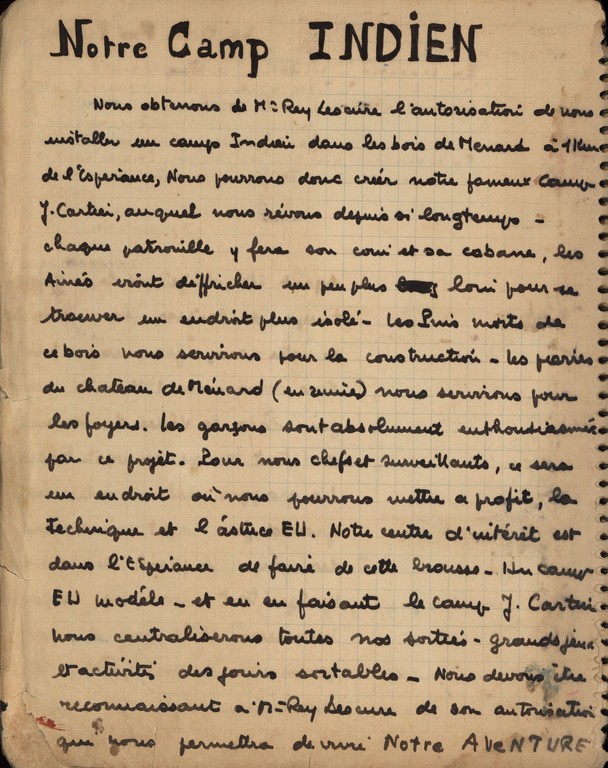 Notre Camp INDIEN
Nous obtenons de Mr Rey Lescure l'autorisation de nous
installer un camp Indien dans les bois de Menard à 1 Km
de l'Esperiance, Nous pourrons donc créer notre fameux Camp
J. Cartier, auquel nous rêvons depuis si longtemps -
chaque patrouille y fera son coin et sa cabane, les
Ainés iront déffricher un peu plus loin pour se
trouver un endroit plus isolé - Les Pins morts de
ce bois nous servirons pour la construction - les pierres
du chateau de Ménard (en ruine) nous servirons pour
les foyers. Les garçons sont absolument enthousiasmés
par ce projet. Pour nous chefs et surveillants, ce sera
un endroit où nous pourrons mettre a profit, la
technique et l'astuce EU. Notre centre d'intérêt est
dans l'Esperiance de faire de cette brousse - Un camp
EU modéle - et en en faisant le camp J. Cartier
nous centraliserons toutes nos sorties - grands jeux
et activités des jours sortables - Nous devons être
reconnaissant à Mr Rey Lescure de son autorisation
qui nous permettra de vivre Notre AVENTURE